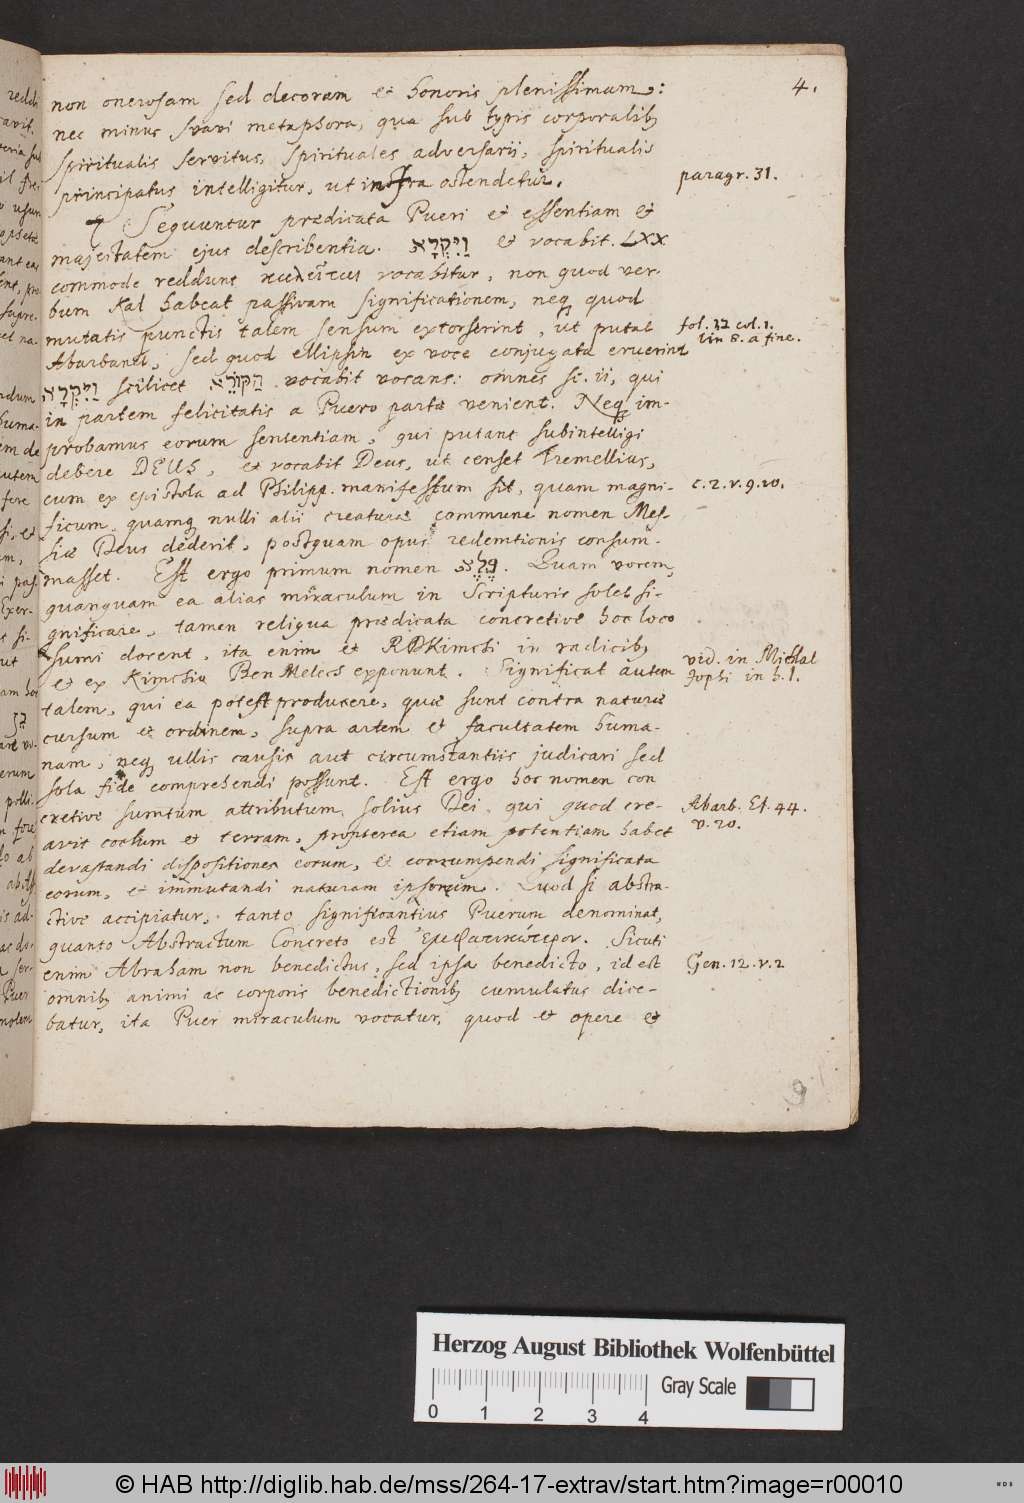 4.
non onerosam sed decoram et honoris plenissimam:
nec minus svavi metaphora, qua sub typis corporalib
spiritualis servitus, spirituales adversarii, spiritualis
principatus intelligitur, ut infra ostendetur.
paragr. 31.
Sequuntur prædicata Pueri et essentiam et
majestatem ejus describentia. וַיִּקְרָא et vocabit. LXX
commode reddunt καλεῖται vocabitur, non quod ver-
bum Kal habeat passivam significationem, neq quod
mutatis punctis talem sensum extorserint, ut putat
fol. 32 col. 1.
lin 8. a fine.
Abarbanel, sed quod ellipsin ex voce conjugata eruerint
וַיִּקְרָא scilicet הַקּוֹרֵא vocabit vocans: omnes sc. ii, qui
in partem felicitatis a Puero partæ venient. Neq im-
probamus eorum sententiam, qui putant subintelligi
debere DEUS, et vocabit Deus, ut censet Tremellius,
cum ex epistola ad Philipp. manifestum sit, quam magni-
c. 2. v. 9. 10.
ficum, quamq nulli alii creaturæ commune nomen Mes-
siæ Deus dederit, postquam opus redemtionis consum-
masset. Est ergo primum nomen פֶּלֶא. Quam vocem,
quanquam ea alias miraculum in Scripturis solet si-
gnificare, tamen reliqua prædicata concretive hoc loco
sumi docent, ita enim et R D Kimchi in radicib
vid. in Michlal
Jophi in h. l.
et ex Kimchio Ben Melech exponunt. Significat autem
talem, qui ea potest producere, quæ sunt contra naturæ
cursum et ordinem, supra artem et facultatem huma-
nam, neq ullis causis aut circumstantiis judicari sed
sola fide comprehendi possunt. Est ergo hoc nomen con
cretive sumtum attributum solius Dei, qui quod cre-
Abarb. Es. 44.
v. 20.
avit coelum et terram, propterea etiam potentiam habet
devastandi dispositiones eorum, et corrumpendi significata
eorum, et immutandi naturam ipsorum. Quod si abstra-
ctive accipiatur, tanto significantius Puerum denominat,
quanto Abstractum Concreto est ἐμφατικώτερον. Sicuti
enim Abraham non benedictus, sed ipsa benedictio, id est
Gen. 12. v. 2
omnib animi ac corporis benedictionib cumulatus dice-
batur, ita Puer miraculum vocatur, quod et opere et
Herzog August Bibliothek Wolfenbüttel
0 1 2 3 4
Gray Scale
© HAB http://diglib.hab.de/mss/264-17-extrav/start.htm?image=r00010